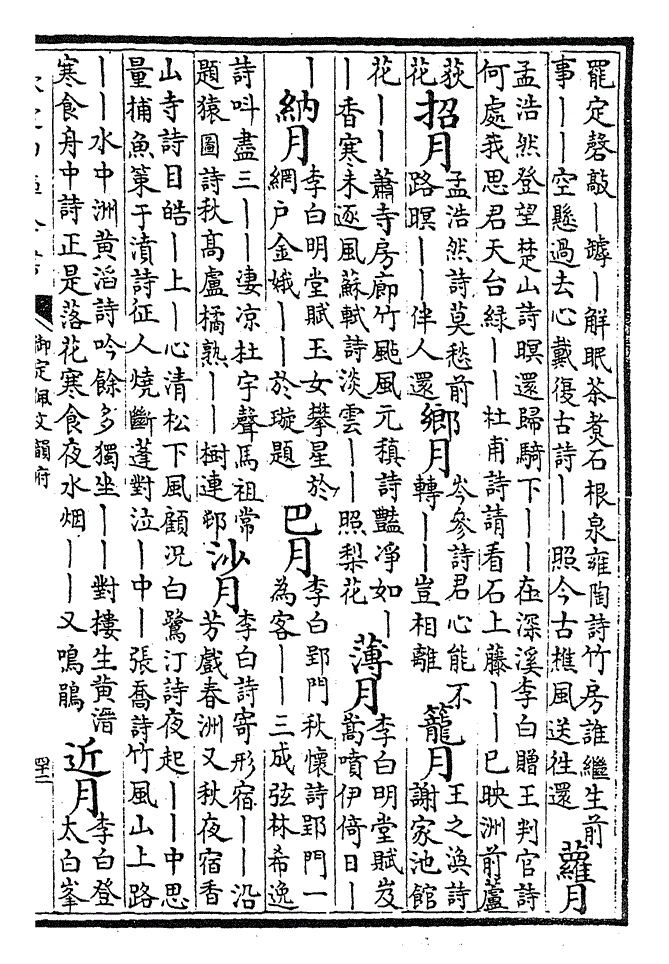 罷定磬敲｜罅｜解眠茶煑石根泉雍陶詩竹房誰繼生前
事｜｜空懸過去心戴復古詩｜｜照今古樵風送往還
蘿月
孟浩然登望楚山詩暝還歸騎下｜｜在深溪李白贈王判官詩
何處我思君天台緑｜｜杜甫詩請看石上藤｜｜已映洲前蘆
荻
花
招月
孟浩然詩莫愁前
路暝｜｜伴人還
鄉月
岑參詩君心能不
轉｜｜豈相離
籠月
王之渙詩
謝家池館
花｜｜蕭寺房廊竹颭風元稹詩豔凈如｜
｜香寒未逐風蘇軾詩淡雲｜｜照梨花
薄月
李白明堂賦岌
嵩噴伊倚日｜
｜
納月
李白明堂賦玉女攀星於
網户金娥｜｜於璇題
巴月
李白郢門秋懷詩郢門一
為客｜｜三成弦林希逸
詩呌盡三｜｜凄凉杜宇聲馬祖常
題猿圖詩秋髙盧橘熟｜｜樹連邨
沙月
李白詩寄形宿｜｜沿
芳戲春洲又秋夜宿香
山寺詩目皓｜上｜心清松下風顧况白鷺汀詩夜起｜｜中思
量捕魚䇿于濆詩征人燒斷蓬對泣｜中｜張喬詩竹風山上路
｜｜水中洲黄滔詩吟餘多獨坐｜｜對樓生黄溍
寒食舟中詩正是落花寒食夜水烟｜｜又鳴鵑
近月
李白登
太白峯
御定佩文韻府
四十二